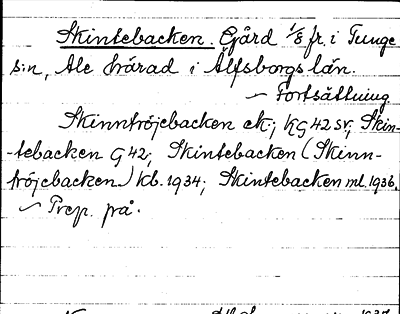 Skintebacken. Gård 1/8 fr. i Tunge
s:n, Ale härad i Älfsborgs län.
~ Fortsättning
Skinntröjebacken ek.; KG 42 sv; Skin-
-tebacken G 42; Skintebacken (Skinn-
tröjebacken) Kb. 1934; Skintebacken ml. 1936.
~ Prep. på.